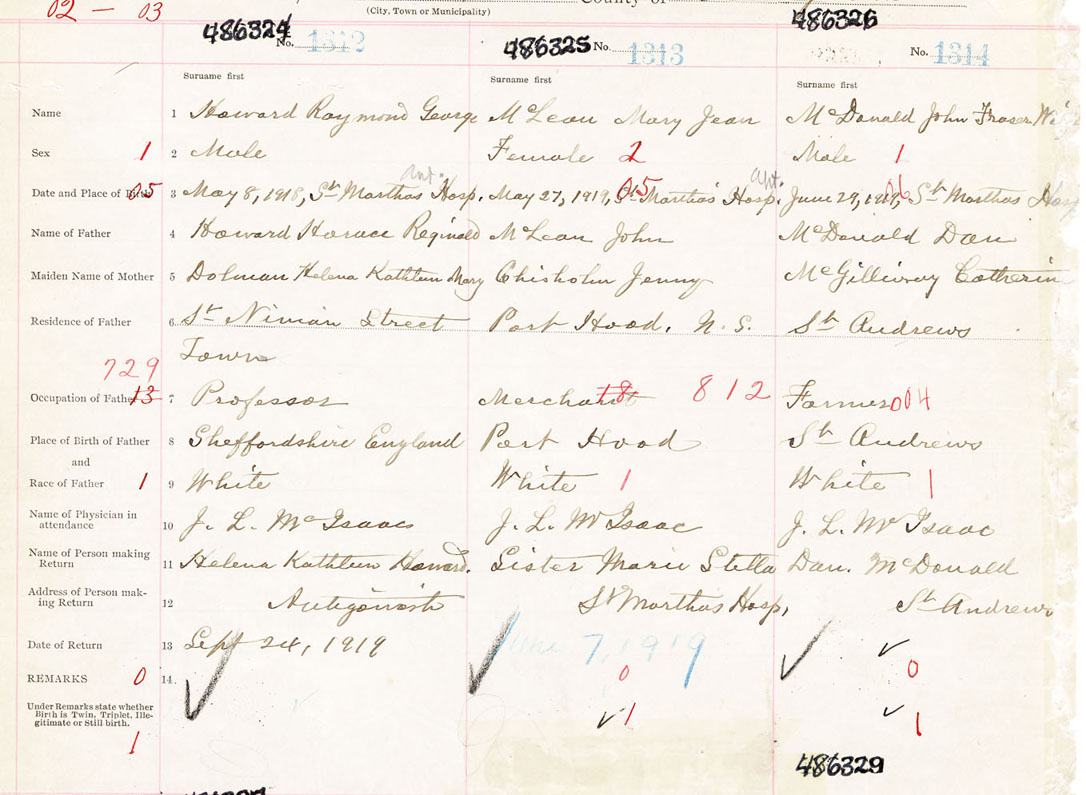 02 - 03
(City, Town or Municipality)
County of
486324 No. 1312
486325 No. 1313
486326 No. 1314
Surname first
Surname first
Surname first
Name 1 Howard Raymond George McLean Mary Jean McDonald John Fraser
Sex 1 2 Male Female 2 Male 1
Ant. Ant.
Date and Place of Birth 05 3 May 8, 1918, St Marthas Hosp. May 27, 1919, 05 St Martha's Hosp. June 29, 1919, St Marthas Hosp
Name of Father 4 Howard Horace Reginald McLean John McDonald Dan
Maiden Name of Mother 5 Dolman Helena Kathleen Mary Chisholm Jenny McGillivray Catherin
Residence of Father 6 St Ninian Street Port Hood, N. S. St Andrews
Town
729
Occupation of Father 13 7 Professor Merchant 18 812 Farmer 004
Place of Birth of Father 8 Sheffordshire England Port Hood St Andrews
and
Race of Father 1 9 White White 1 White 1
Name of Physician in
attendance 10 J. L. McIsaac J. L. McIsaac J. L. McIsaac
Name of Person making
Return 11 Helena Kathleen Howard. Sister Marie Stella Dan. McDonald
Address of Person mak-
ing Return 12 Antigonish St Marthas Hosp, St Andrews
Date of Return 13 Sept 24, 1919 June 7, 1919
REMARKS 0 14. 0 0
Under Remarks state whether
Birth is Twin, Triplet, Ille-
gitimate or Still birth.
1 1 1
486329